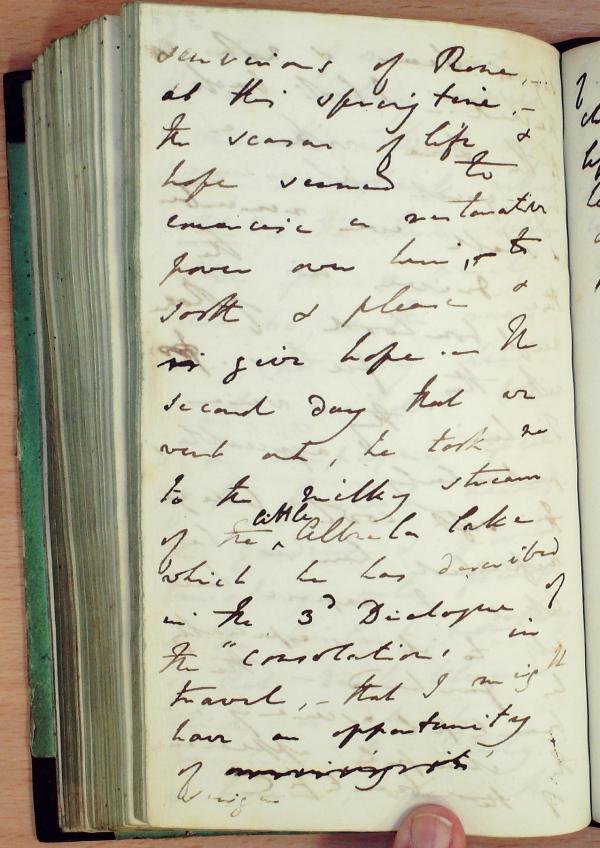 environs of Rome,
at this spring time, –
the season of life &
hope seemed to
exercise a restorative
power over him, – to
sooth & please &
give hope. – The
second day that we
went out, he took me
to the milky stream
of the little Albula lake
which he has described
in the 3d Dialogue of
the "Consolations in
travel, – that I might
have an opportunity
of